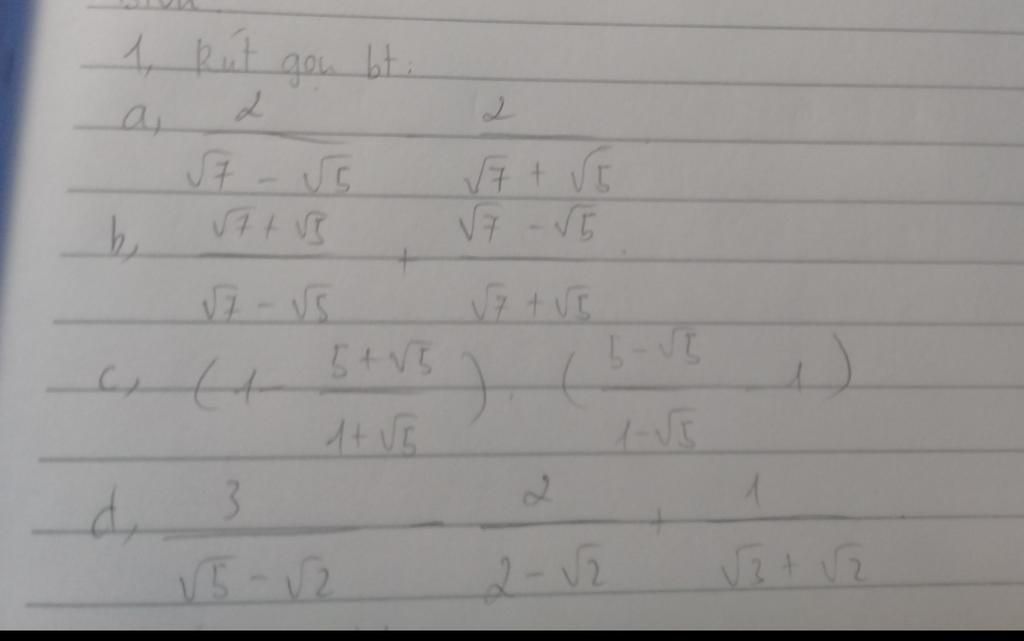 1, Rút gọn bt:
a, 2/(√7 - √5) 2/(√7 + √5)
b, (√7 + √5)/(√7 - √5) + (√7 - √5)/(√7 + √5)
c, (1 - (5 + √5)/(1 + √5)) . ((5 - √5)/(1 - √5) - 1)
d, 3/(√5 - √2) - 2/(2 - √2) + 1/(√3 + √2)